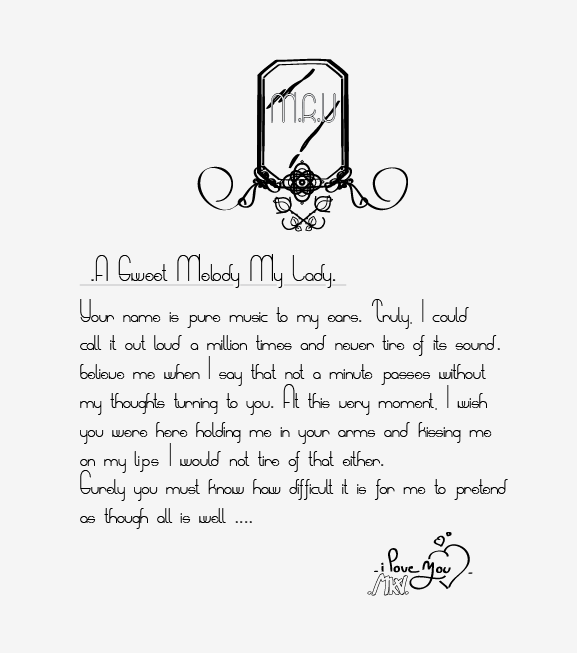 M.R.U
.A Sweet Melody My Lady.
Your name is pure music to my ears. Truly, I could
call it out loud a million times and never tire of its sound.
believe me when I say that not a minute passes without
my thoughts turning to you. At this very moment, I wish
you were here holding me in your arms and kissing me
on my lips I would not tire of that either.
Surely you must know how difficult it is for me to pretend
as though all is well ....
-i love you-